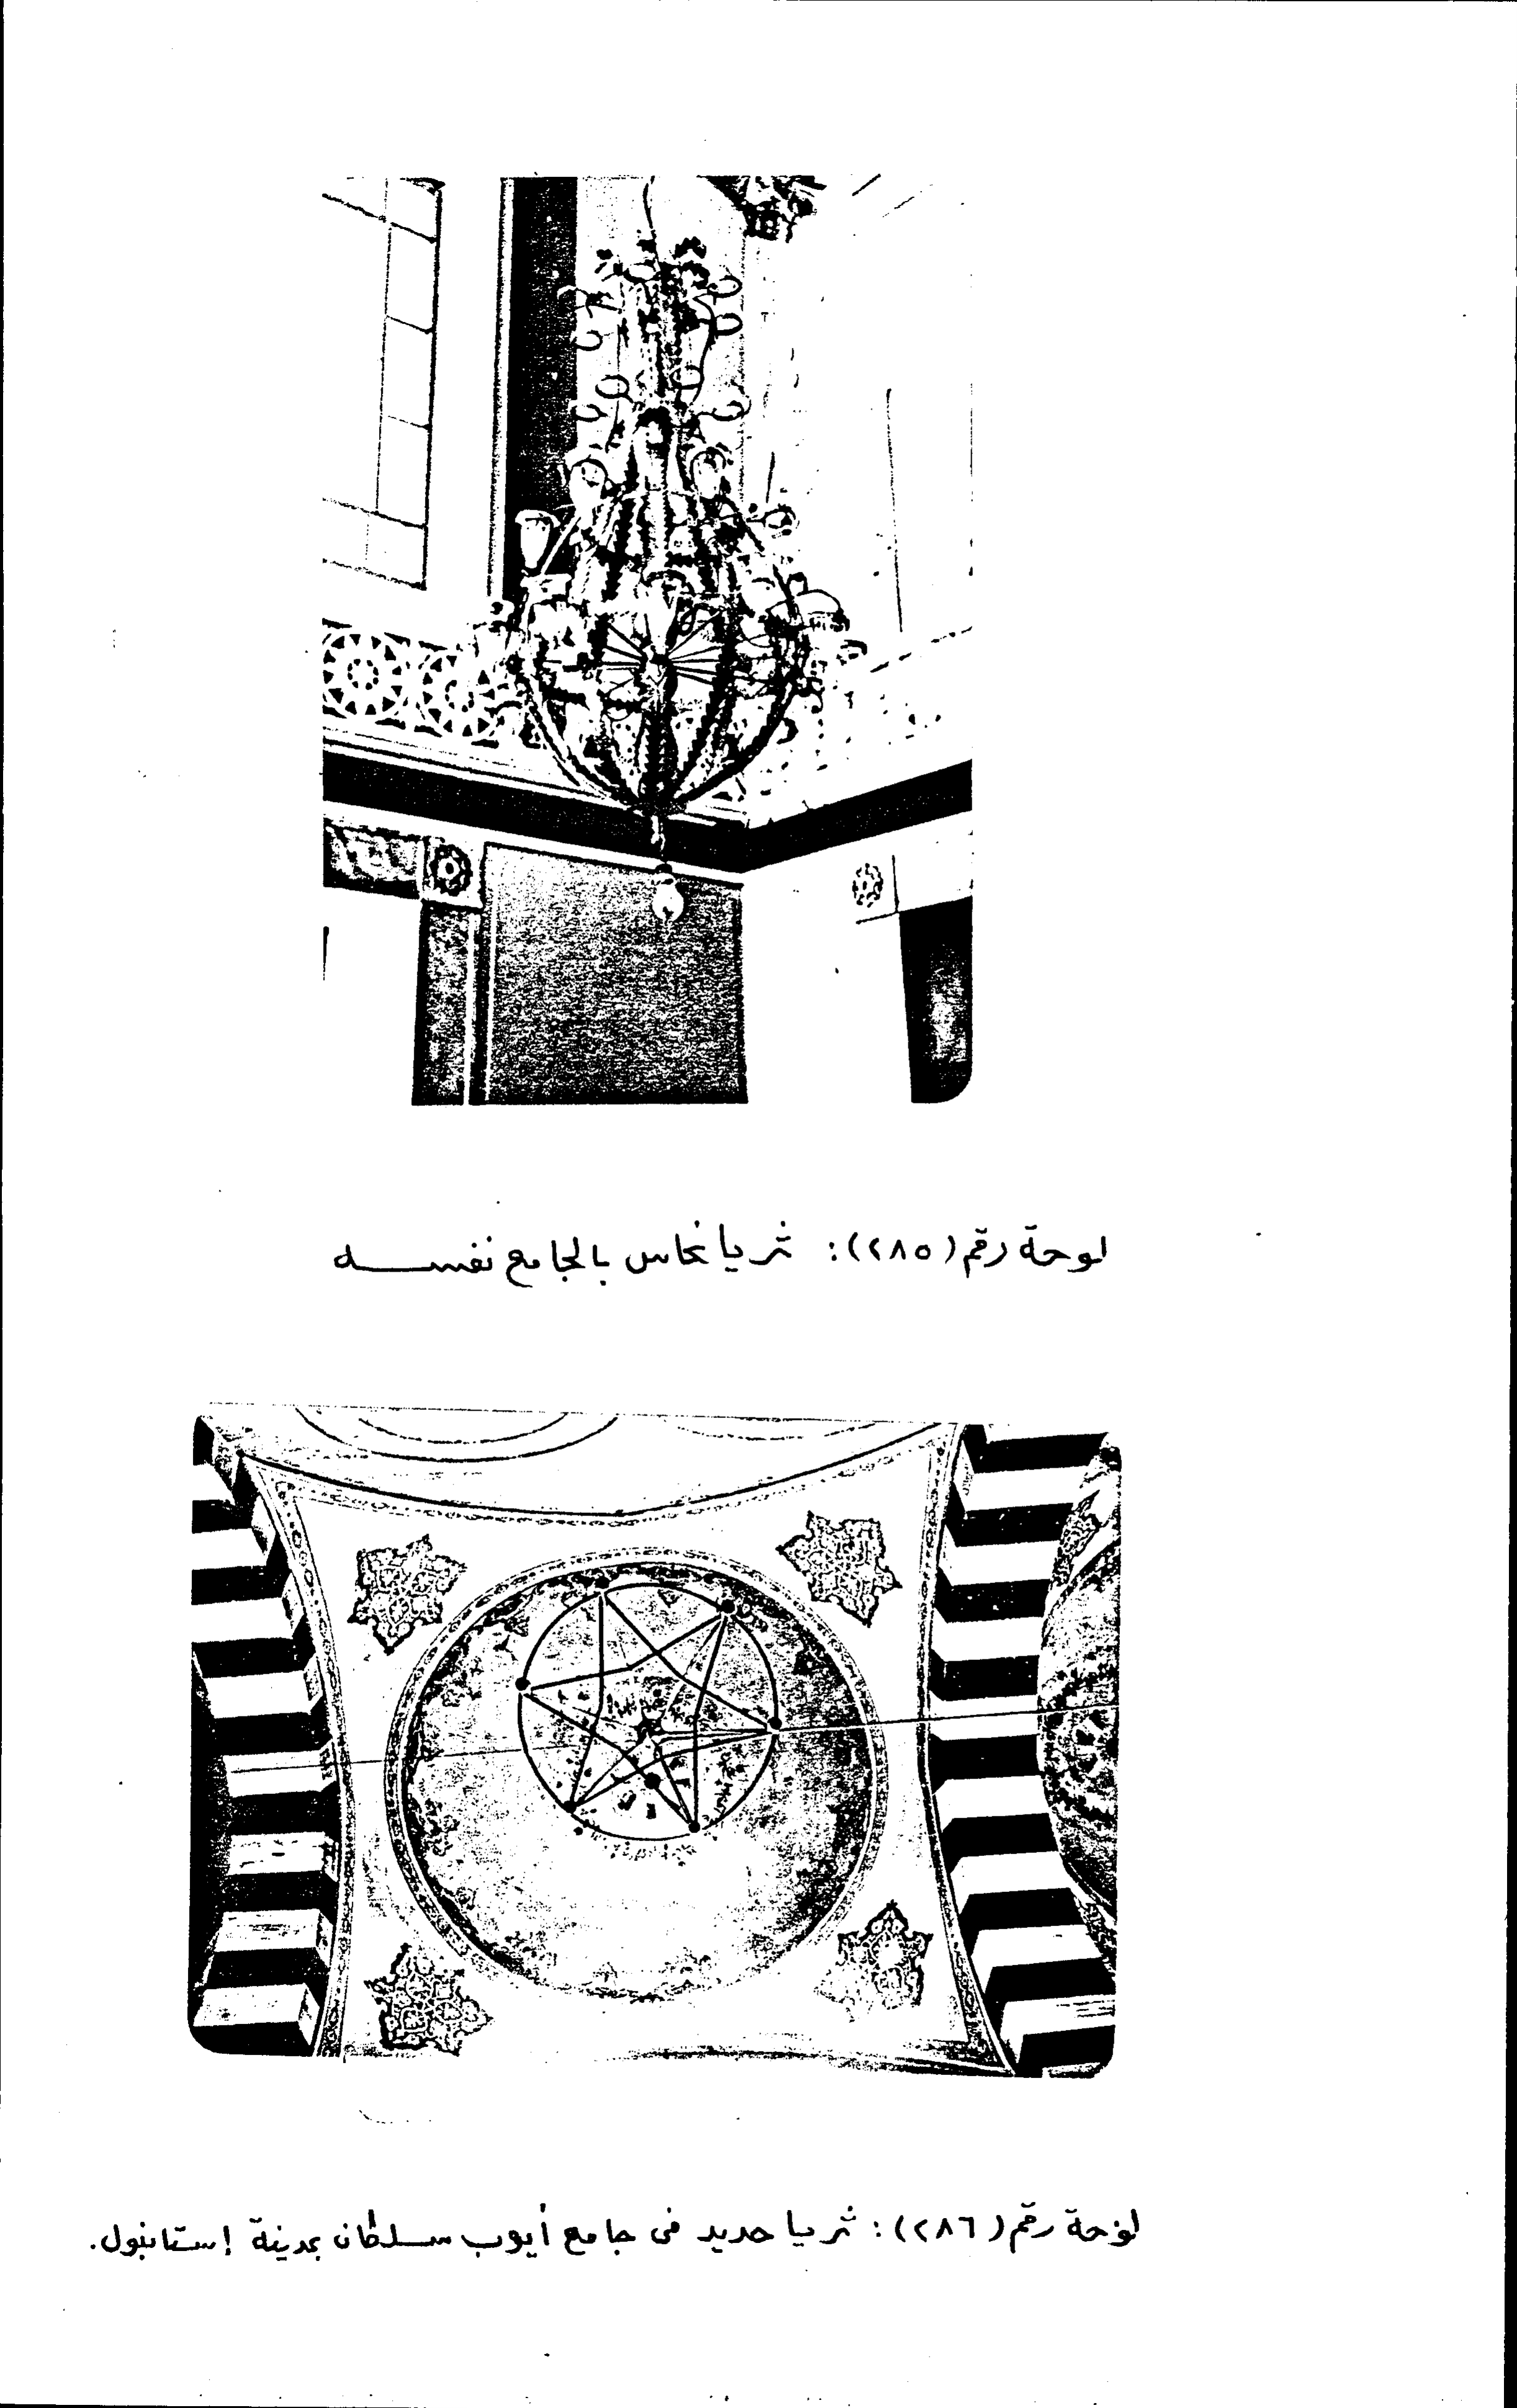 لوحة رقم (٢٨٥): ثريا نحاس بالجامع نفسه
لوحة رقم (٢٨٦): ثريا حديد فى جامع أيوب سلطان بمدينة إستانبول.